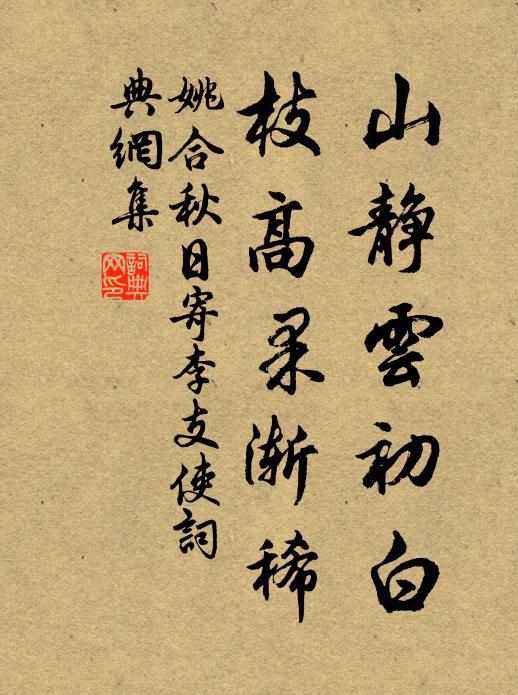 山静雲初白
枝高果漸稀
姚合秋日寄李支使詞
典網集
詞典網印